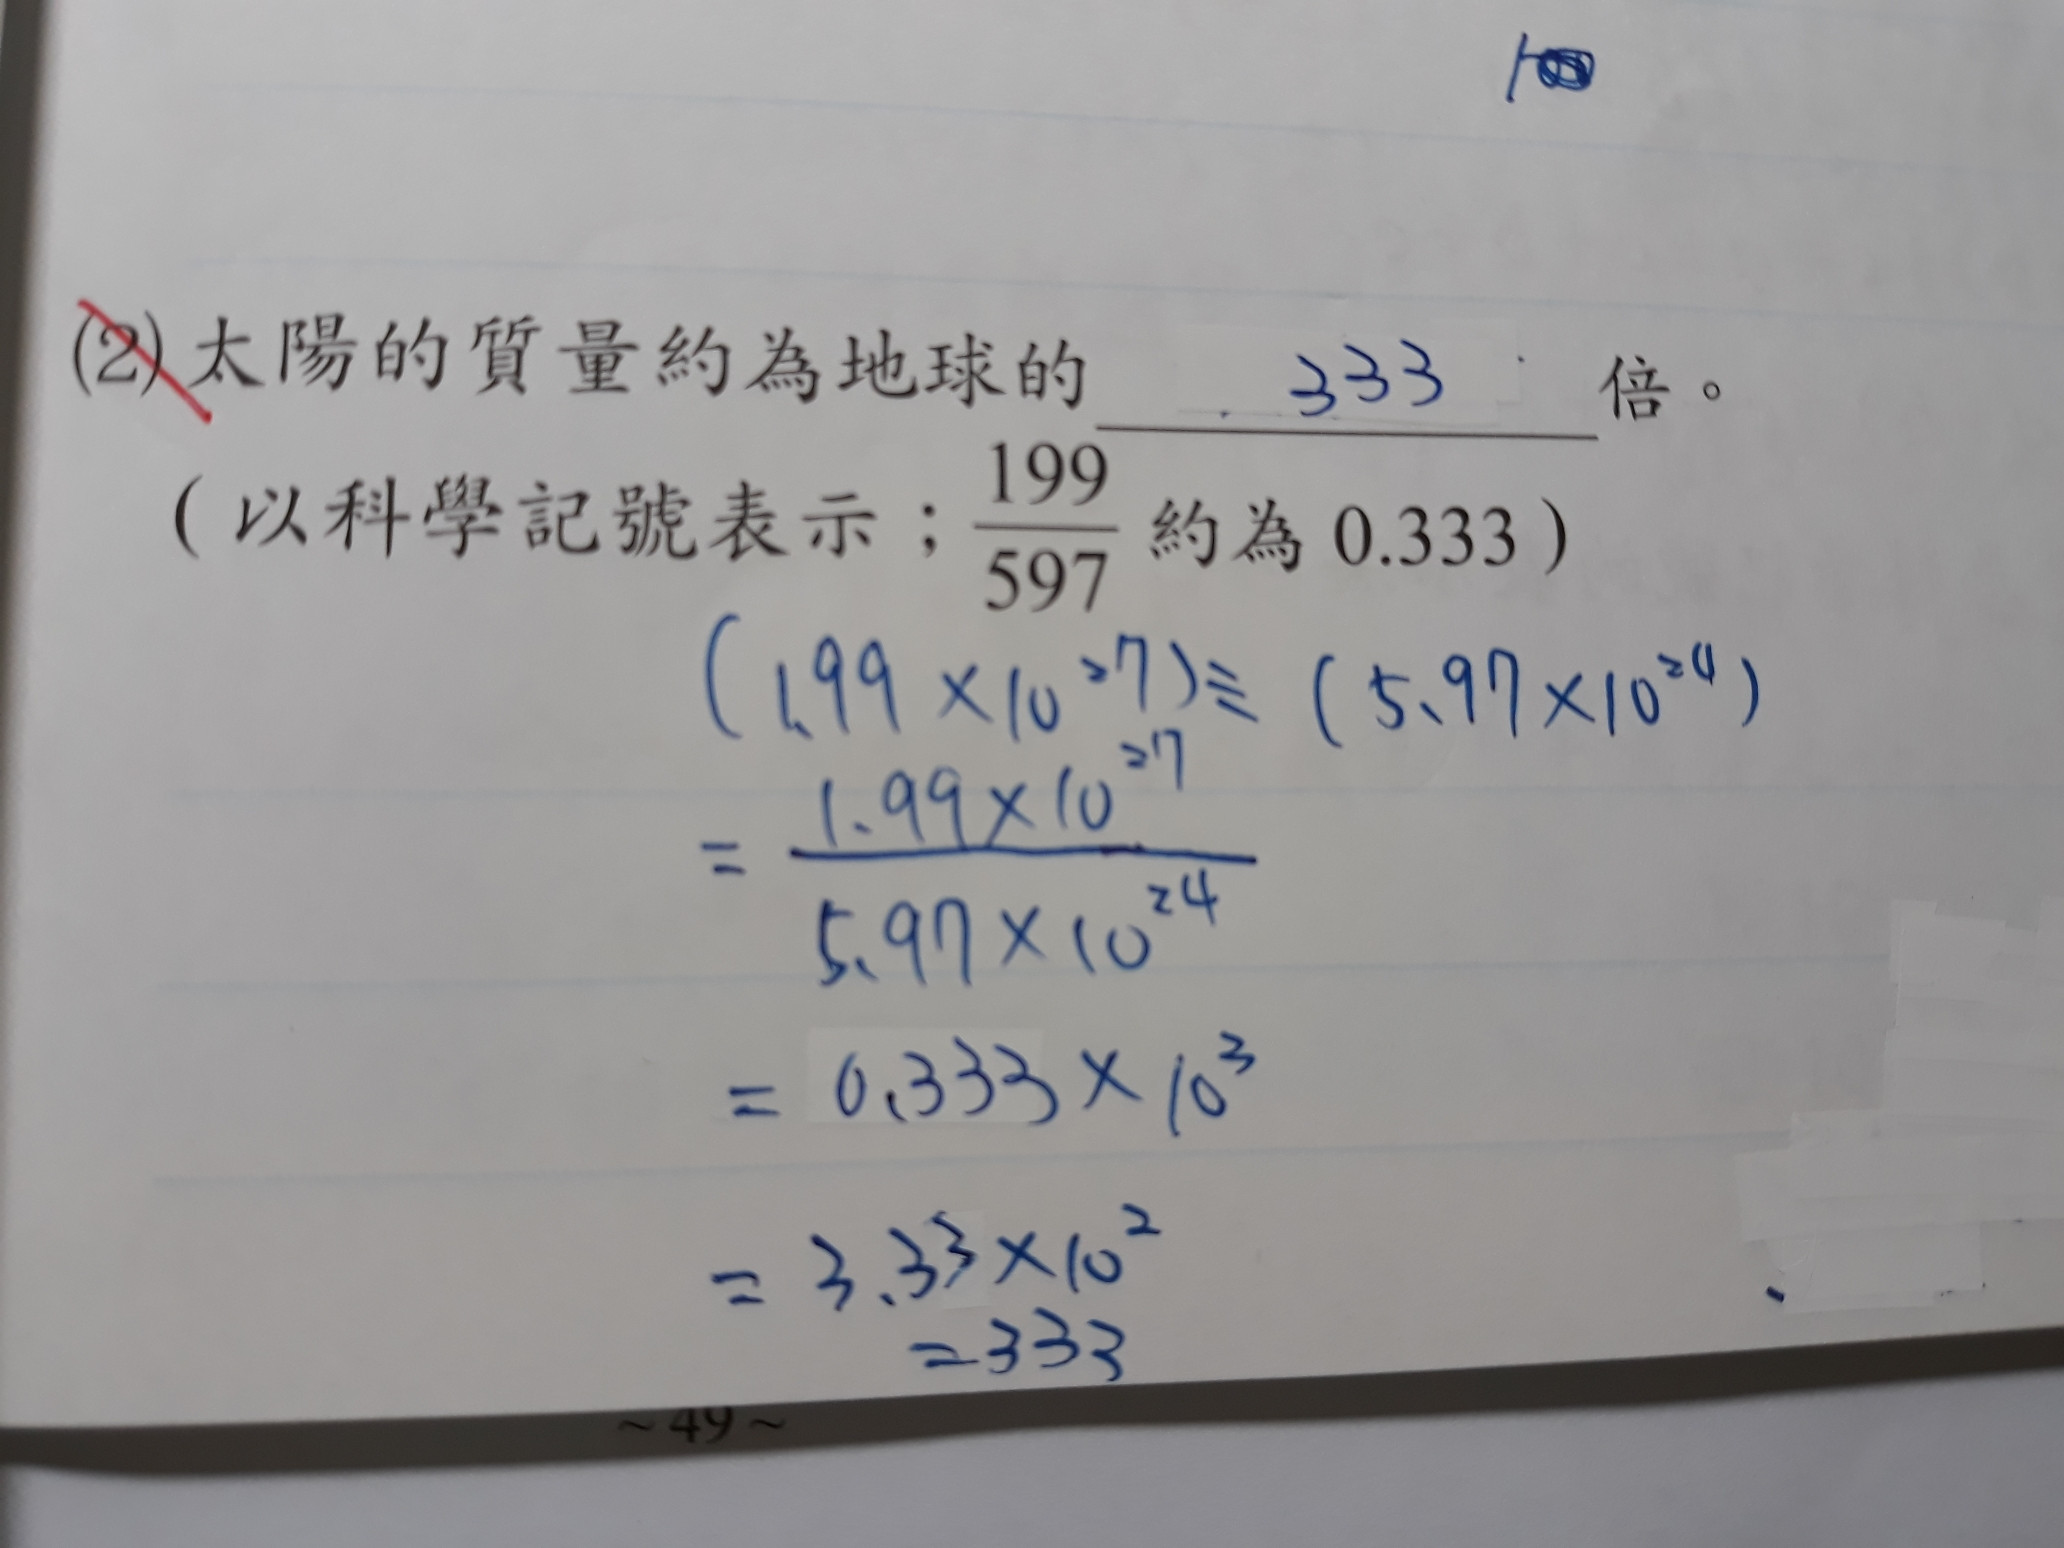 (2) 太陽的質量約為地球的 333 倍。
(以科學記號表示；199/597 約為 0.333)
(1.99×10²⁷)÷(5.97×10²⁴)
= 1.99×10²⁷ / 5.97×10²⁴
= 0.333×10³
= 3.33×10²
=333
~49~